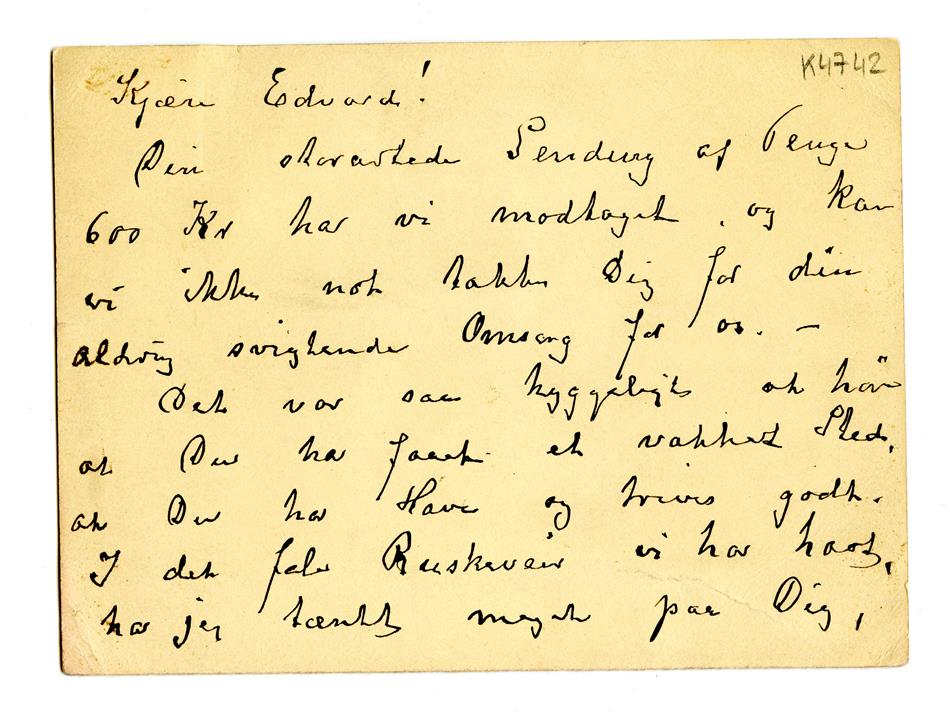 K4742
Kjære Edvard!
Din storartede Sending af Penge
600 Kr har vi modtaget, og kan
vi ikke nok takke Dig for din
aldrig svigtende Omsorg for os. –
Det var saa hyggeligt at høre
at Du har faaet et vakkert Sted,
at Du har Have og trives godt.
I det fale Ruskeveir vi har havt,
har jeg tænkt meget paa Dig,